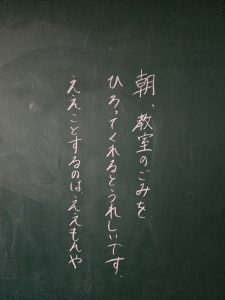 朝、教室のごみを
ひろってくれるとうれしいです.
ええことするのは、ええもんや